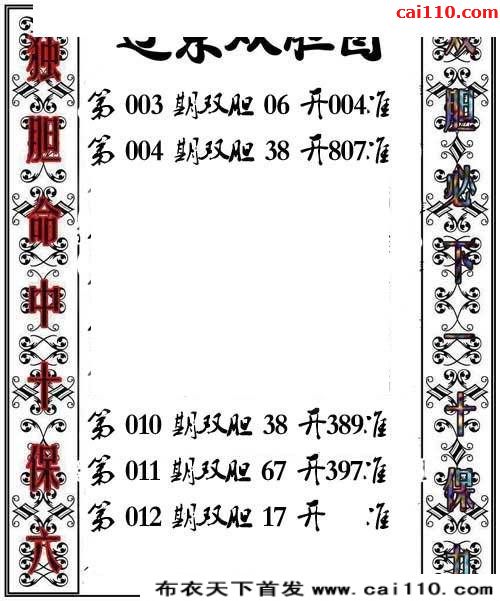 cai110.com
双胆图
第 003 期双胆 06 开004准
第 004 期双胆 38 开807准
第 010 期双胆 38 开389准
第 011 期双胆 67 开397准
第 012 期双胆 17 开 准
独胆命中十保六
双胆必下一十保九
布衣天下首发 www.cai110.com